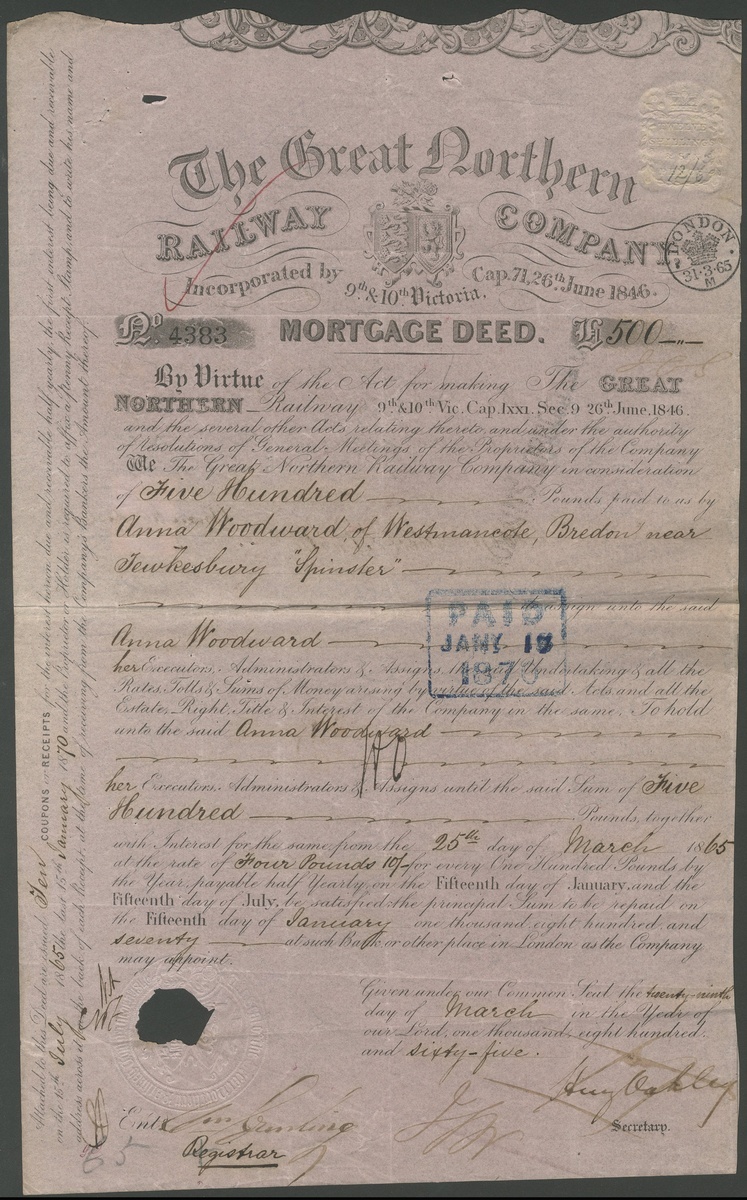 The Great Northern
RAILWAY COMPANY
Incorporated by Cap. 71, 26th June 1846.
9th & 10th Victoria.
LONDON
31·3·65
M
No 4383 MORTGAGE DEED. £500 — " —
By Virtue of the Act for making The GREAT
NORTHERN Railway 9th & 10th Vic. Cap. lxxi. Sec. 9 26th June, 1846.
and the several other Acts relating thereto and under the authority
of Resolutions of General Meetings of the Proprietors of the Company
We The Great Northern Railway Company in consideration
of Five Hundred Pounds paid to us by
Anna Woodward, of Westmancote, Bredon near
Tewkesbury "Spinster"
assign unto the said
PAID
JANY 15
1870
Anna Woodward
her Executors, Administrators & Assigns, the said Undertaking & all the
Rates Tolls & Sums of Money arising by virtue of the said Acts and all the
Estate, Right, Title & Interest of the Company in the same. To hold
unto the said Anna Woodward
her Executors, Administrators & Assigns until the said Sum of Five
Hundred Pounds, together
with Interest for the same from the 25th day of March 1865
at the rate of Four Pounds 10/- for every One Hundred Pounds by
the Year, payable half Yearly, on the Fifteenth day of January, and the
Fifteenth day of July, be satisfied; the principal Sum to be repaid on
the Fifteenth day of January one thousand, eight hundred, and
seventy at such Bank or other place in London as the Company
may appoint.
Given under our Common Seal the twenty-ninth
day of March in the Year of
our Lord, one thousand, eight hundred,
and sixty-five.
Henry Oakley
Secretary.
Entd
Registrar
65
Attached to this Deed are issued Ten COUPONS or RECEIPTS for the interest herein due and receivable half yearly, the first interest being due and receivable
on the 15th July 1865 the last 15th January 1870 and the Proprietor or Holder is required to affix a Penny Receipt Stamp and to write his name and
address across it on the back of each Receipt at the time of receiving from the Company's Bankers the Amount thereof.